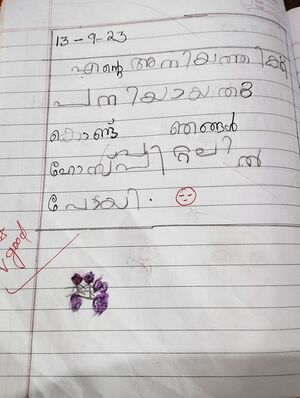 13-9-23
എന്റെ അനിയത്തിക്കു
പനിയായത്
കൊണ്ട് ഞങ്ങൾ
ഹോസ്പ്പിറ്റലിൽ
പോയി.
good